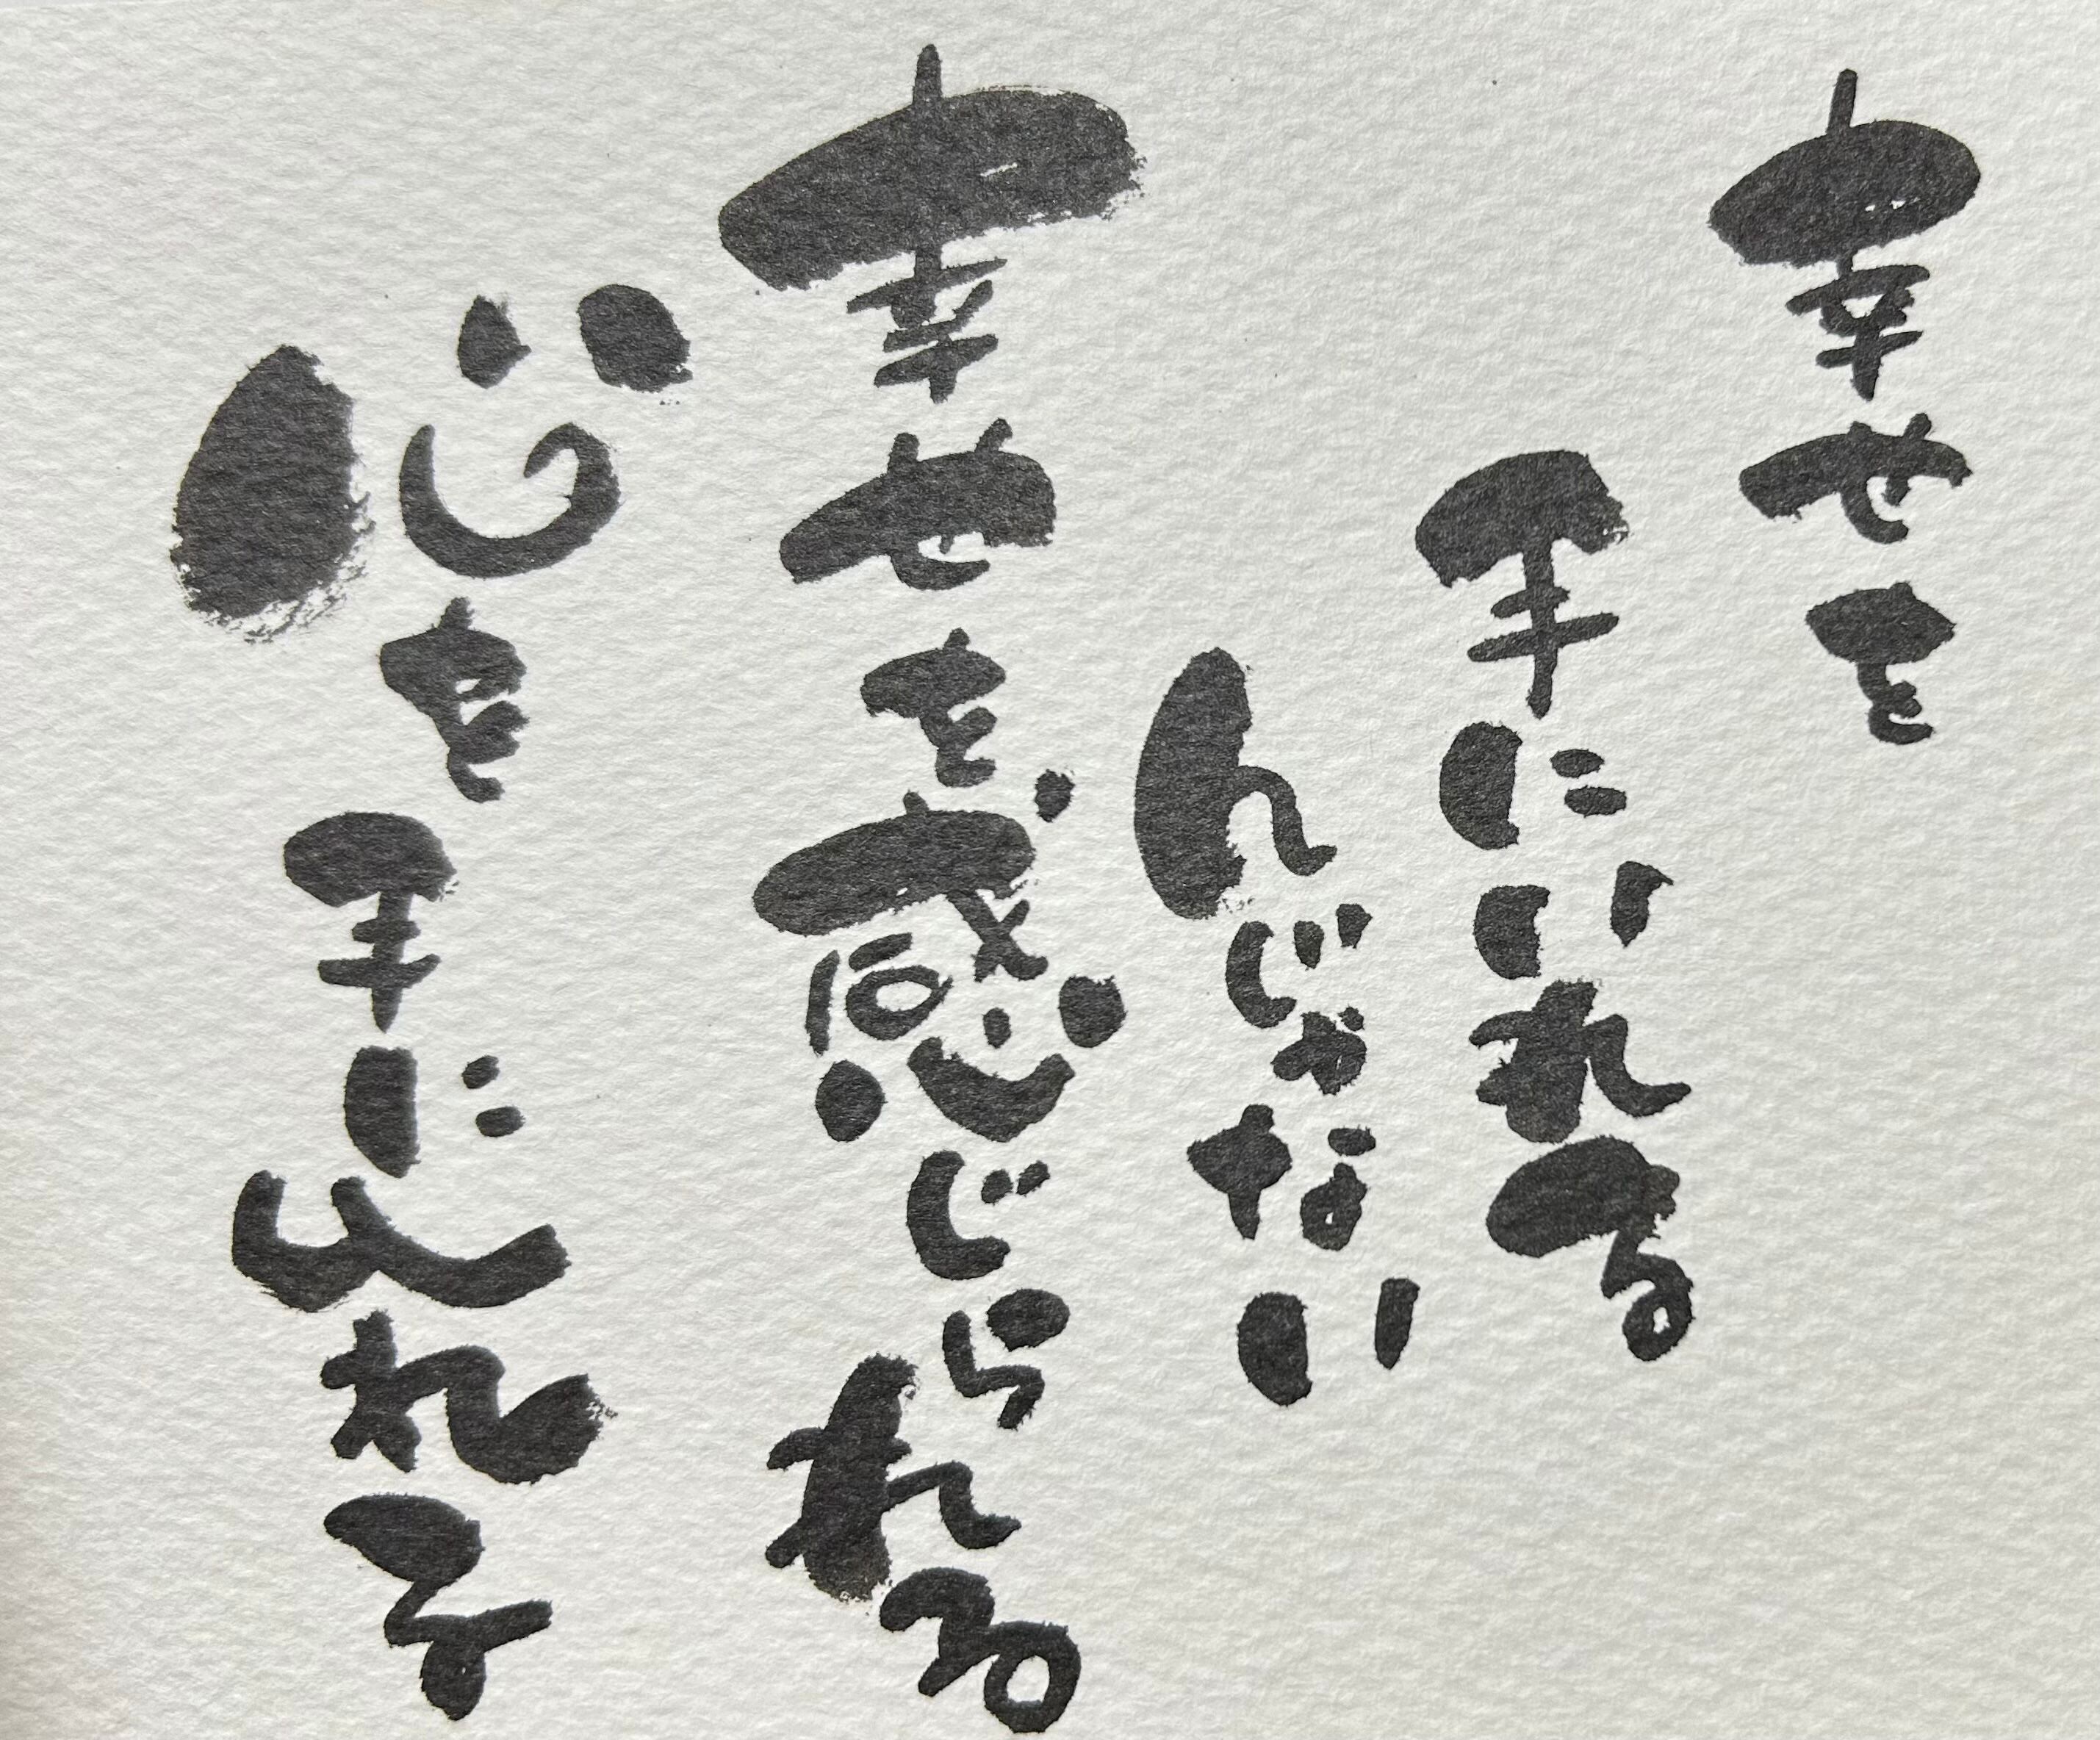 幸せを
手にいれる
んじゃない
幸せを感じられる
心を手に入れる